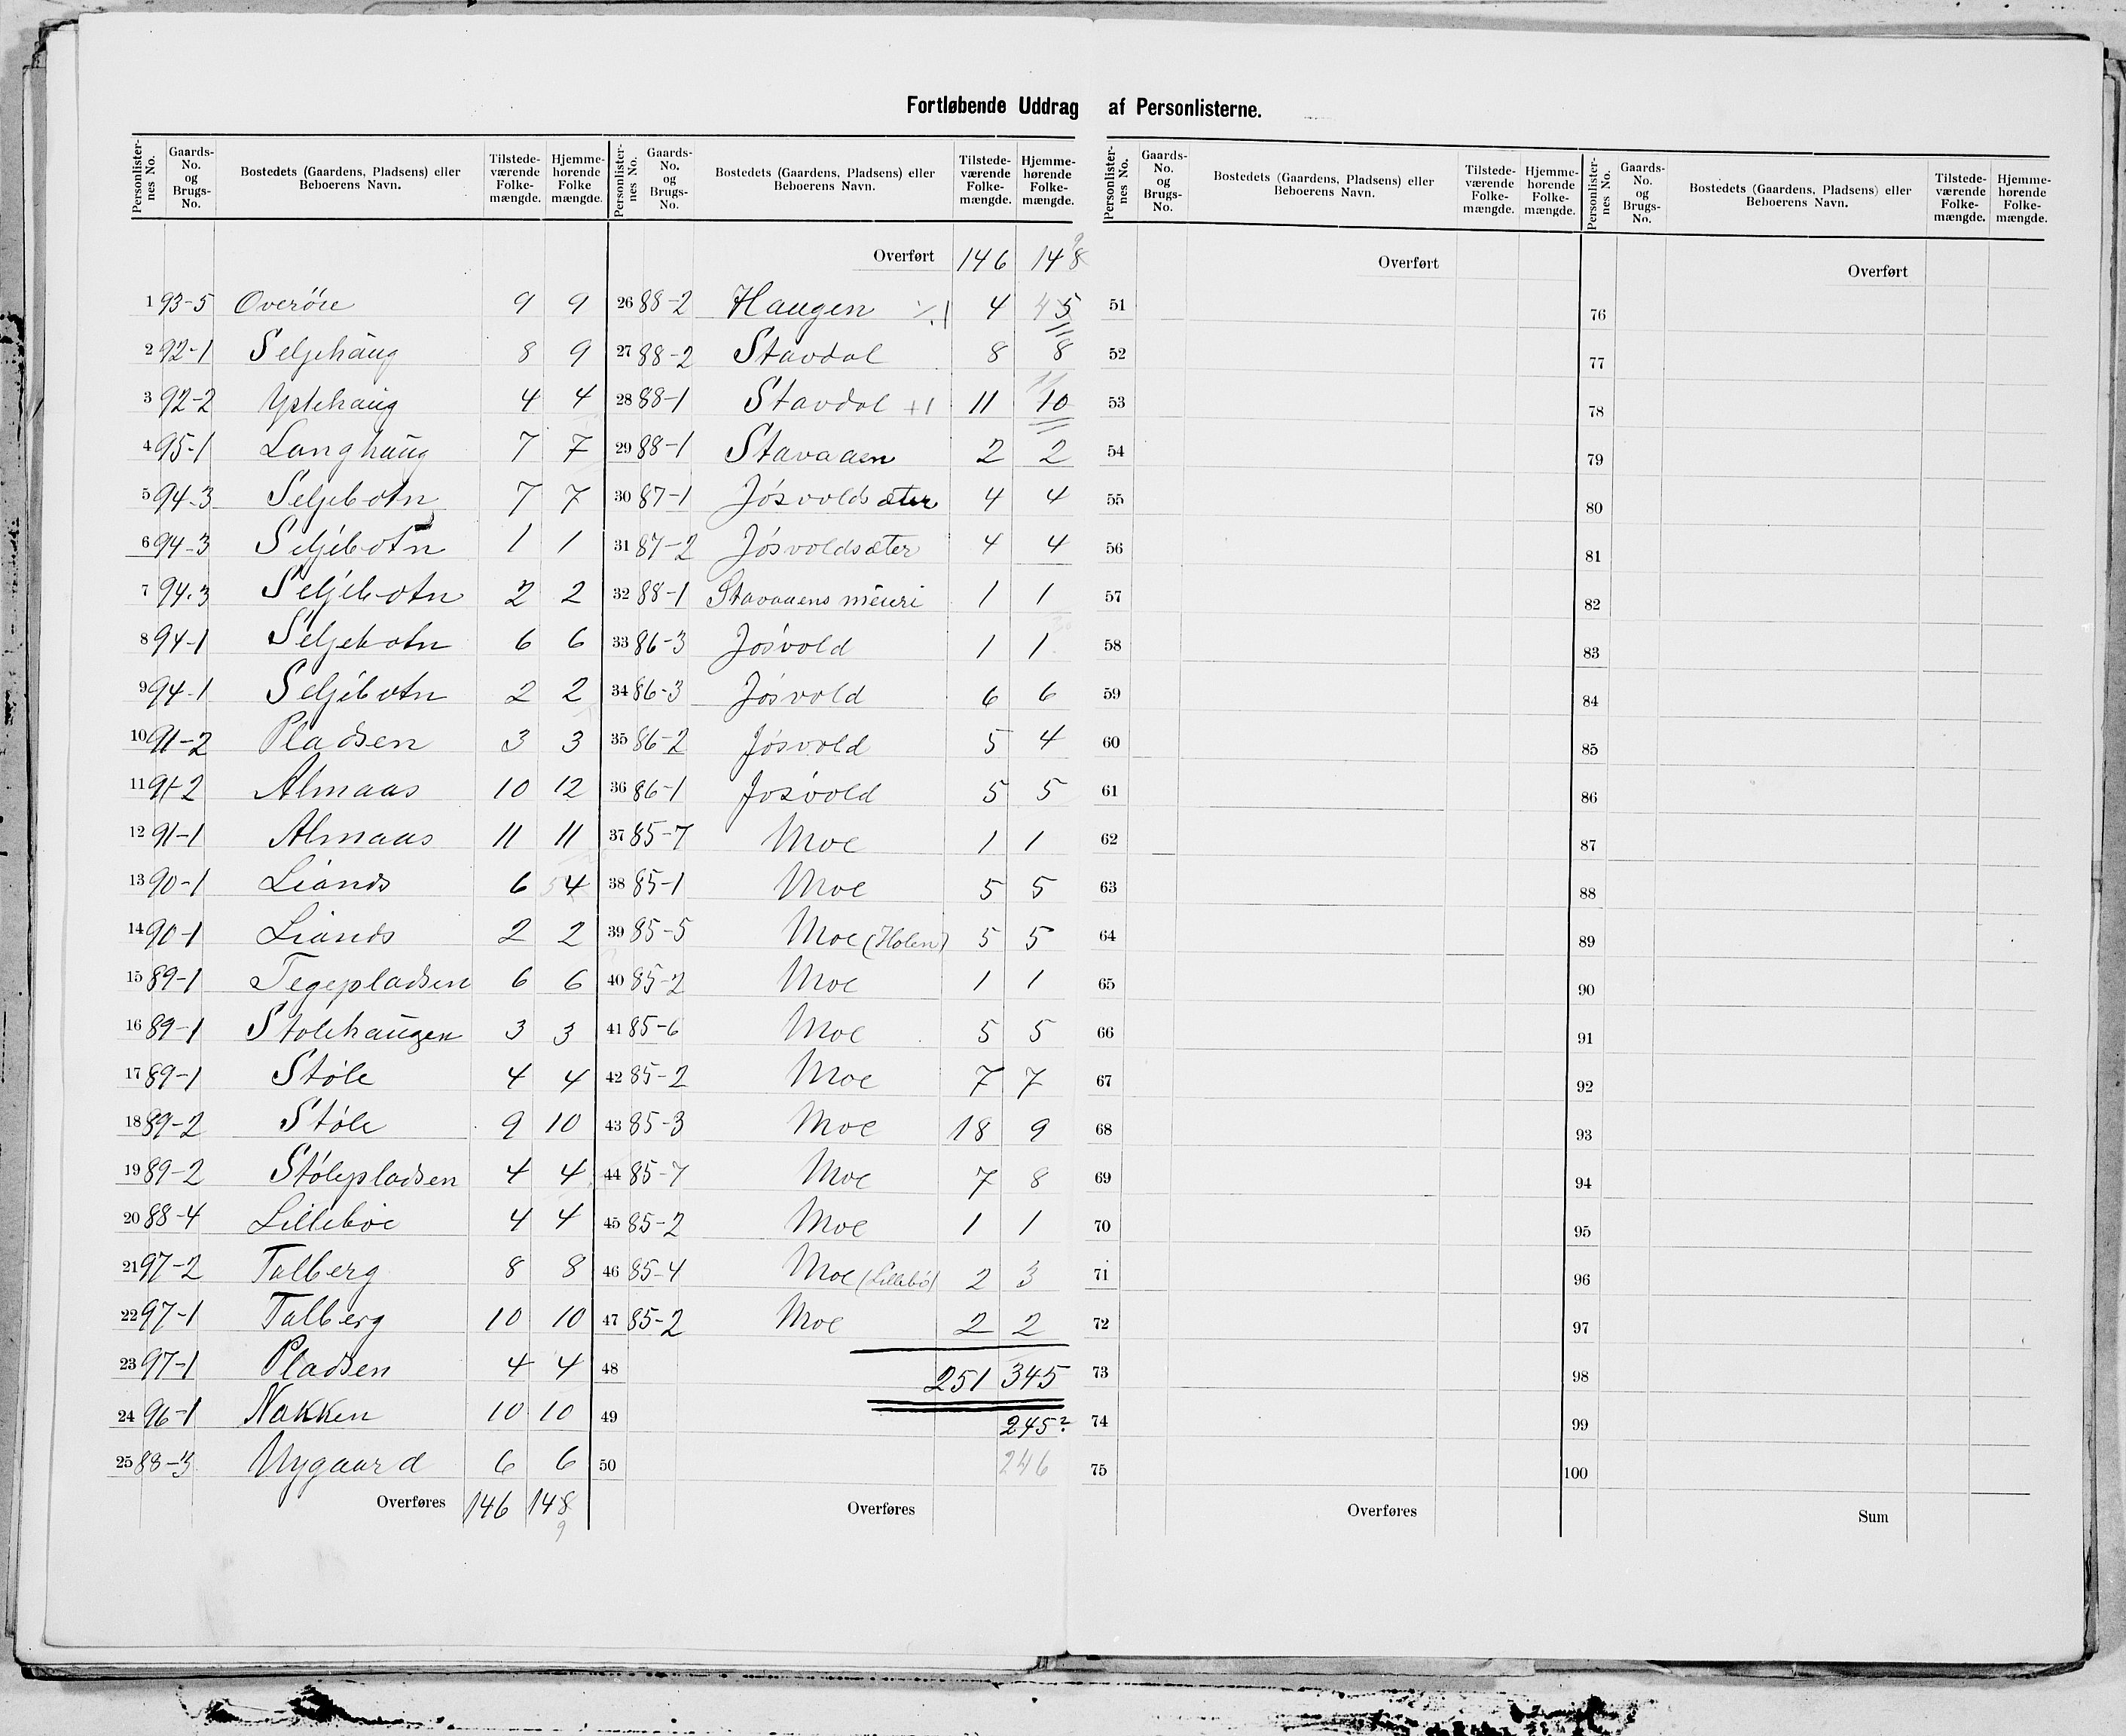 Fortløbende Uddrag af Personlisterne.
Personlisternes No. Gaards-No. og Brugs-No. Bostedets (Gaardens, Pladsens) eller Beboerens Navn. Tilstedeværende Folkemængde. Hjemmehørende Folkemængde.
1 93-5 Overöie 9 9
2 92-1 Seljehaug 8 9
3 92-2 Ystehaug 4 4
4 95-1 Langhaug 7 7
5 94-3 Seljebotn 7 7
6 94-3 Seljebotn 1 1
7 94-3 Seljebotn 2 2
8 94-1 Seljebotn 6 6
9 94-1 Seljebotn 2 2
10 91-2 Pladsen 3 3
11 91-2 Almaas 10 12
12 91-1 Almaas 11 11
13 90-1 Lianes 6 5 4
14 90-1 Lianes 2 2
15 89-1 Tegepladsen 6 6
16 89-1 Stolehaugen 3 3
17 89-1 Støle 4 4
18 89-2 Støle 9 10
19 89-2 Stølepladsen 4 4
20 88-4 Lillebøe 4 4
21 97-2 Talberg 8 8
22 97-1 Talberg 10 10
23 97-1 Pladsen 4 4
24 96-1 Nakken 10 10
25 88-3 Nygaard 6 6
Overføres 146 148
9
Overført 146 148 9
26 88-2 Haugen ./.1 4 4 5
27 88-2 Stavdal 8 8
28 88-1 Stavdal +1 11 11 10
29 88-1 Stavaaen 2 2
30 87-1 Jøsvoldsæter 4 4
31 87-2 Jøsvoldsæter 4 4
32 88-1 Stavaaens meieri 1 1
33 86-3 Jøsvold 1 1
34 86-3 Jøsvold 6 6
35 86-2 Jøsvold 5 4
36 86-1 Jøsvold 5 5
37 85-7 Moe 1 1
38 85-1 Moe 5 5
39 85-5 Moe (Holen) 5 5
40 85-2 Moe 1 1
41 85-6 Moe 5 5
42 85-2 Moe 7 7
43 85-3 Moe 18 9
44 85-7 Moe 7 8
45 85-2 Moe 1 1
46 85-4 Moe (Lillebø) 2 3
47 85-2 Moe 2 2
48 251 345
49 245?
50 246
Overføres
Personlisternes No. Gaards-No. og Brugs-No. Bostedets (Gaardens, Pladsens) eller Beboerens Navn. Tilstedeværende Folkemængde. Hjemmehørende Folkemængde.
Overført
51
52
53
54
55
56
57
58
59
60
61
62
63
64
65
66
67
68
69
70
71
72
73
74
75
Overføres
Overført
76
77
78
79
80
81
82
83
84
85
86
87
88
89
90
91
92
93
94
95
96
97
98
99
100
Sum